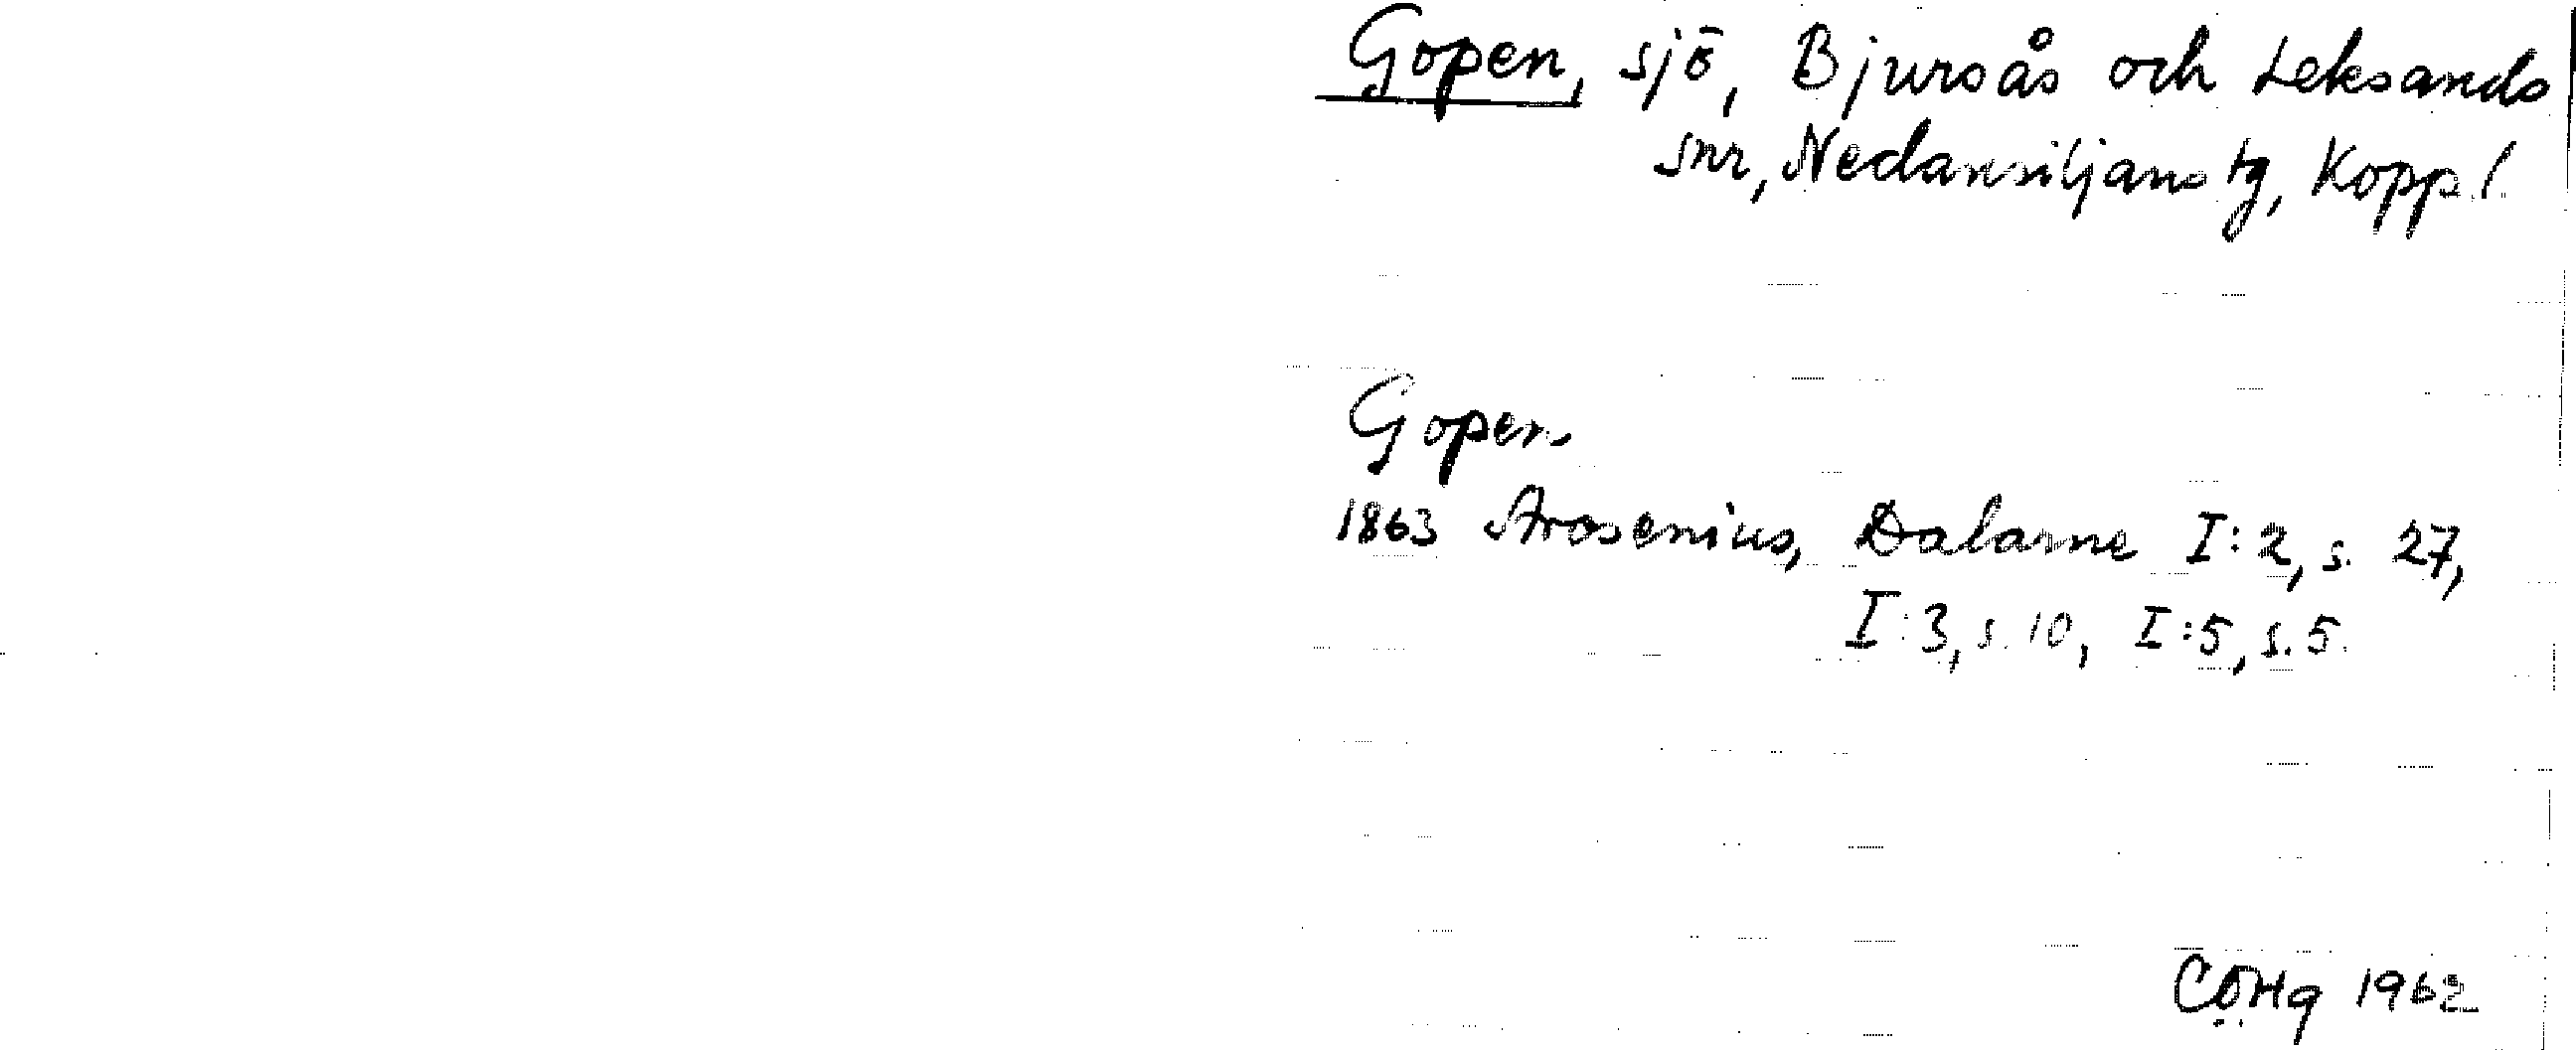 Gopen, sjö, Bjursås och Leksands
snr, Nedansiljans tg, Kopp. l.
Gopen
1863 Arosenius, Dalarne I:2, s. 27,
I:3, s. 10, I:5, s. 5.
1962